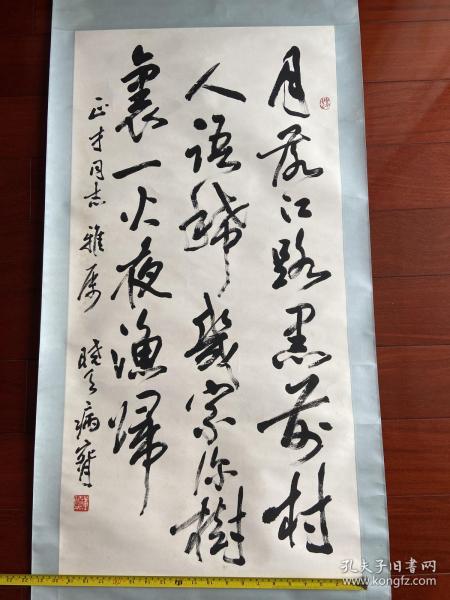 月落江路黑前村
人語稀幾家深樹
裏一火夜漁歸
正才同志雅属 晓天病
孔夫子旧书网
www.kongfz.com